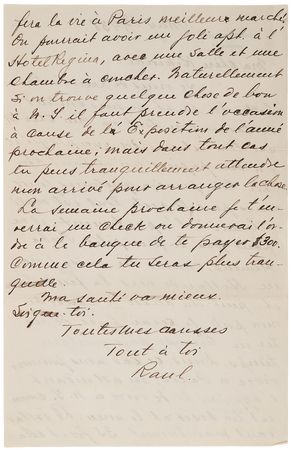 fera la vie à Paris meilleur marché.
On pourrait avoir un joli apt. à l'
Hotel Regina, avec une salle et une
chambre à coucher. Naturellement
si on trouve quelque chose de bon
à N. Y il faut prendre l'occasion
à cause de la Exposition de l'anné
prochaine, mais dans tout cas
tu peus tranquillement attendre
mon arrivé pour arranger la chose.
La semaine prochaine je t'en-
verrai un check ou donnerai l'or-
de à le banque de te payer $300.
Comme cela tu seras plus tran-
quille.
Ma santé va mieux.
Soigne-toi.
Toutes mes caresses
Tout à toi
Raul.